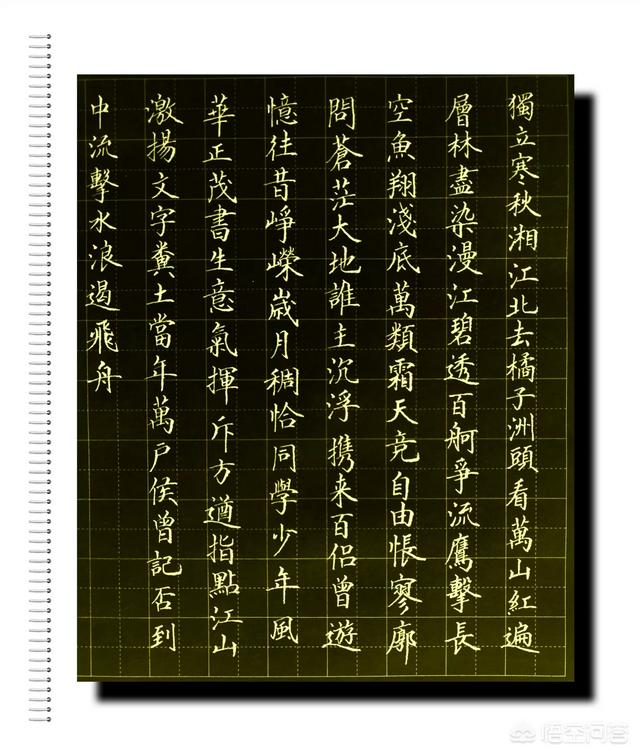 獨立寒秋湘江北去橘子洲頭看萬山紅遍
層林盡染漫江碧透百舸爭流鷹擊長
空魚翔淺底萬類霜天竞自由悵寥廓
問蒼茫大地誰主沉浮携来百侣曾遊
憶往昔崢嶸歲月稠恰同學少年風
華正茂書生意氣揮斥方遒指點江山
激揚文字糞土當年萬户侯曾記否到
中流擊水浪遏飛舟
悟空问答